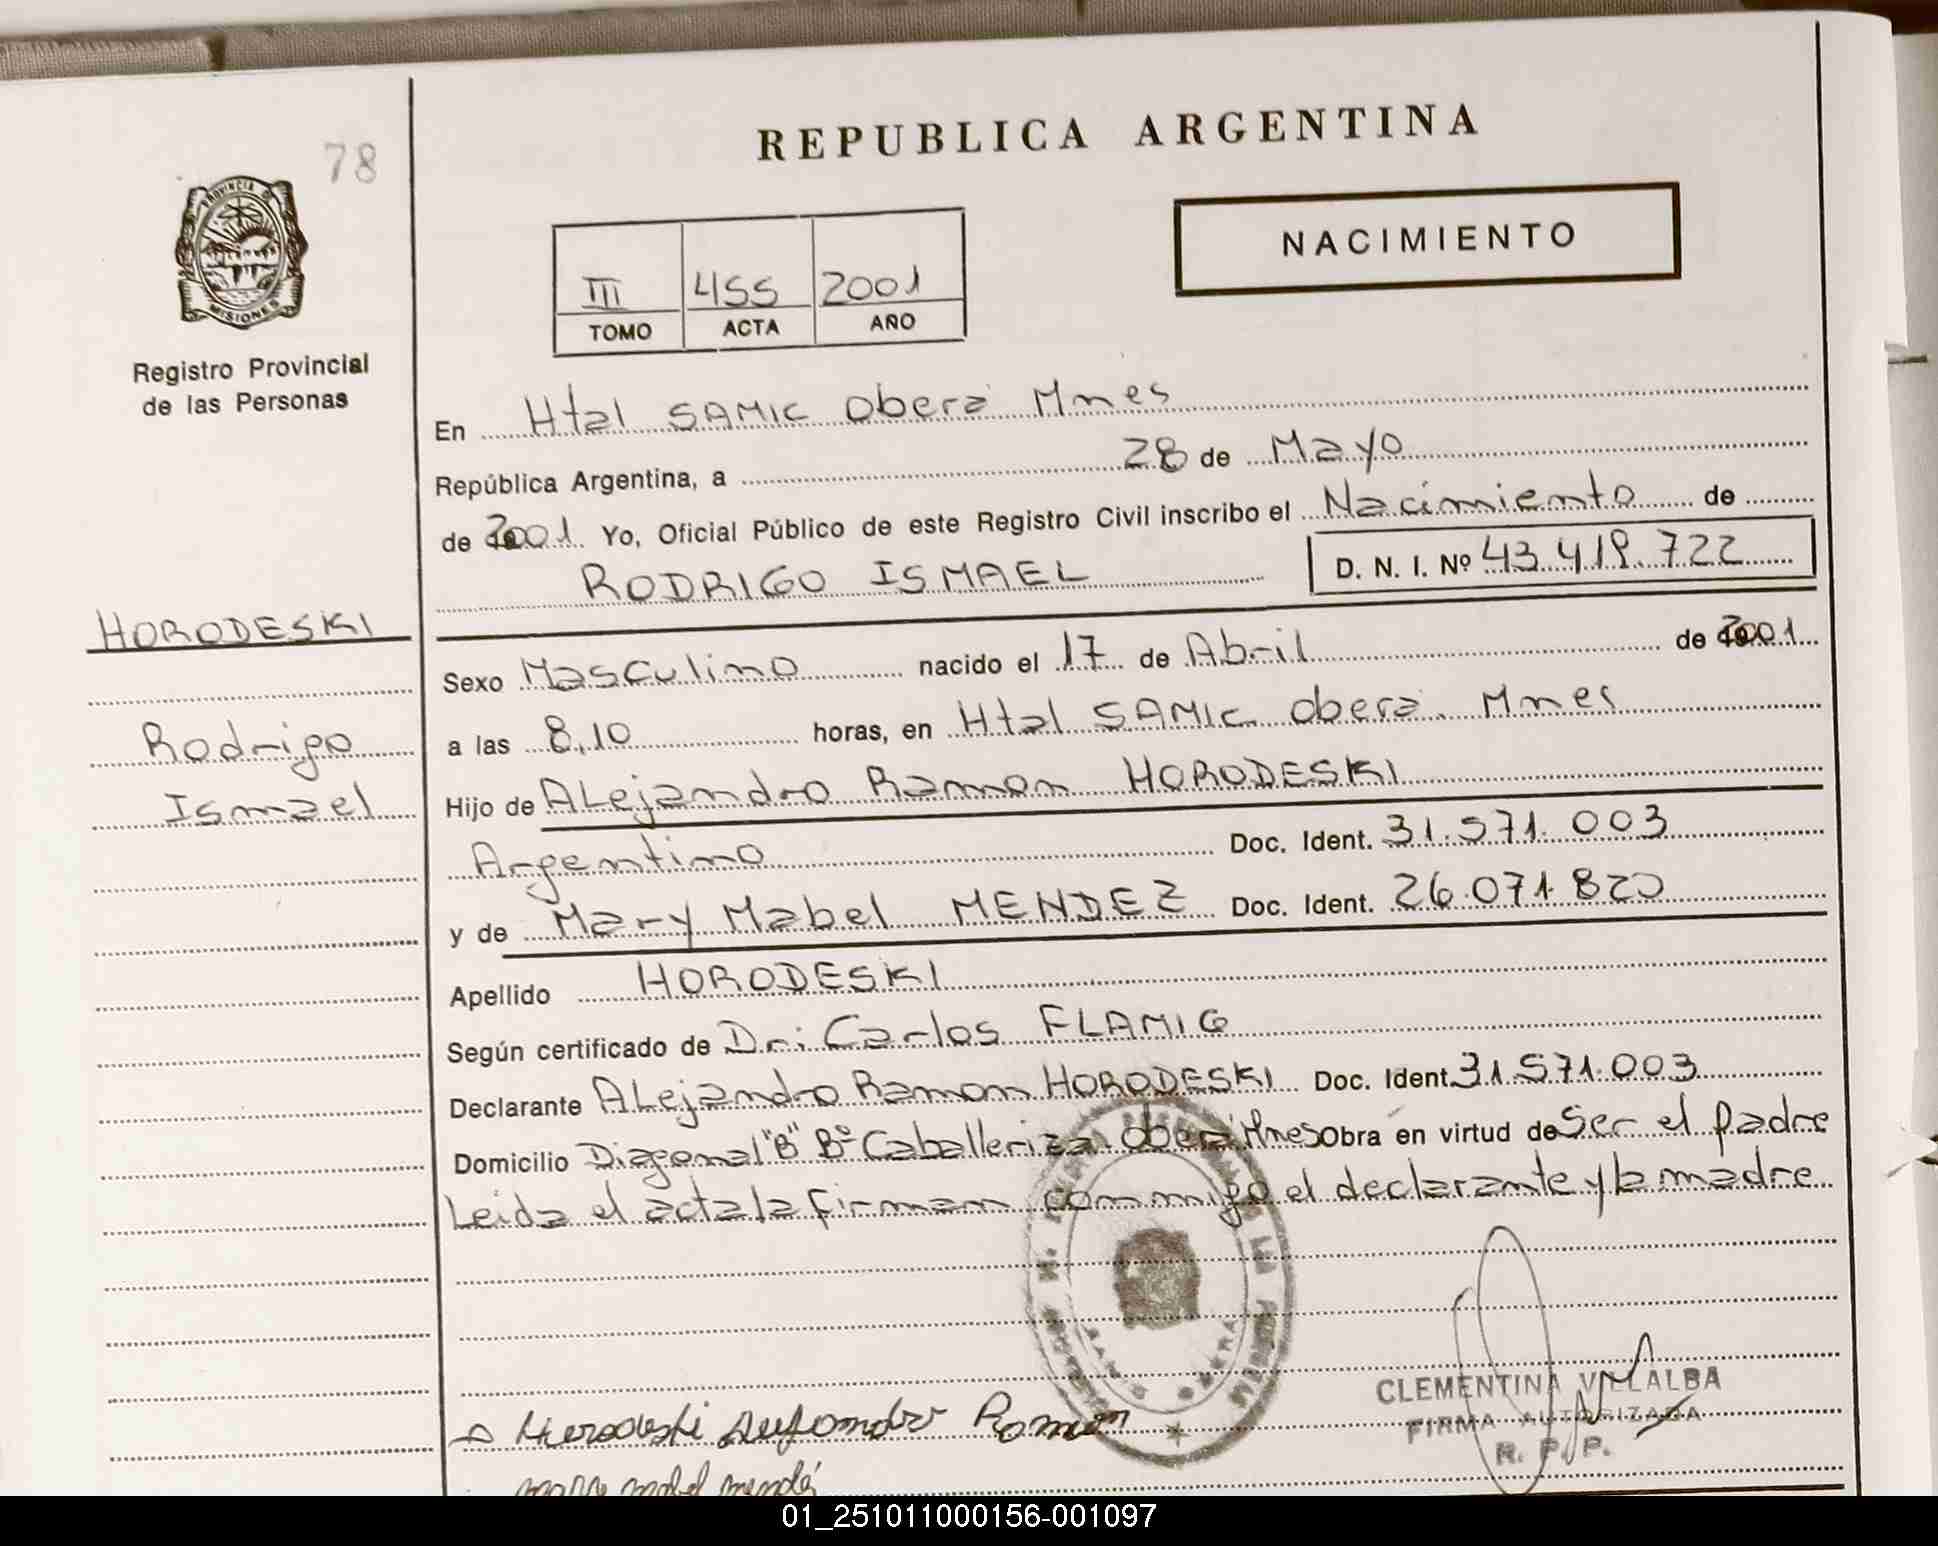 78
REPUBLICA ARGENTINA
NACIMIENTO
III 455 2001
TOMO ACTA AÑO
PROVINCIA DE
MISIONES
Registro Provincial
de las Personas
En Htal SAMIC Oberá Mnes
República Argentina, a 28 de Mayo
de 2001 Yo, Oficial Público de este Registro Civil inscribo el Nacimiento de
RODRIGO ISMAEL D. N. I. Nº 43.419.722
HORODESKI
Rodrigo
Ismael
Sexo Masculino nacido el 17 de Abril de 2001
a las 8,10 horas, en Htal SAMIC. Oberá. Mnes
Hijo de Alejandro Ramon HORODESKI
Argentino Doc. Ident. 31.571.003
y de Mary Mabel MENDEZ Doc. Ident. 26.071.820
Apellido HORODESKI
Según certificado de Dr: Carlos FLAMIG
Declarante Alejandro Ramon HORODESKI Doc. Ident. 31.571.003
Domicilio Diagonal "B" Bº Caballeriza. Oberá Mnes Obra en virtud de Ser el padre
Leida el acta la firman conmigo el declarante y la madre
Horodeski Alejandro Ramon
CLEMENTINA VILLALBA
FIRMA AUTORIZADA
R. P. P.
mary mabel mendéz
01_251011000156-001097